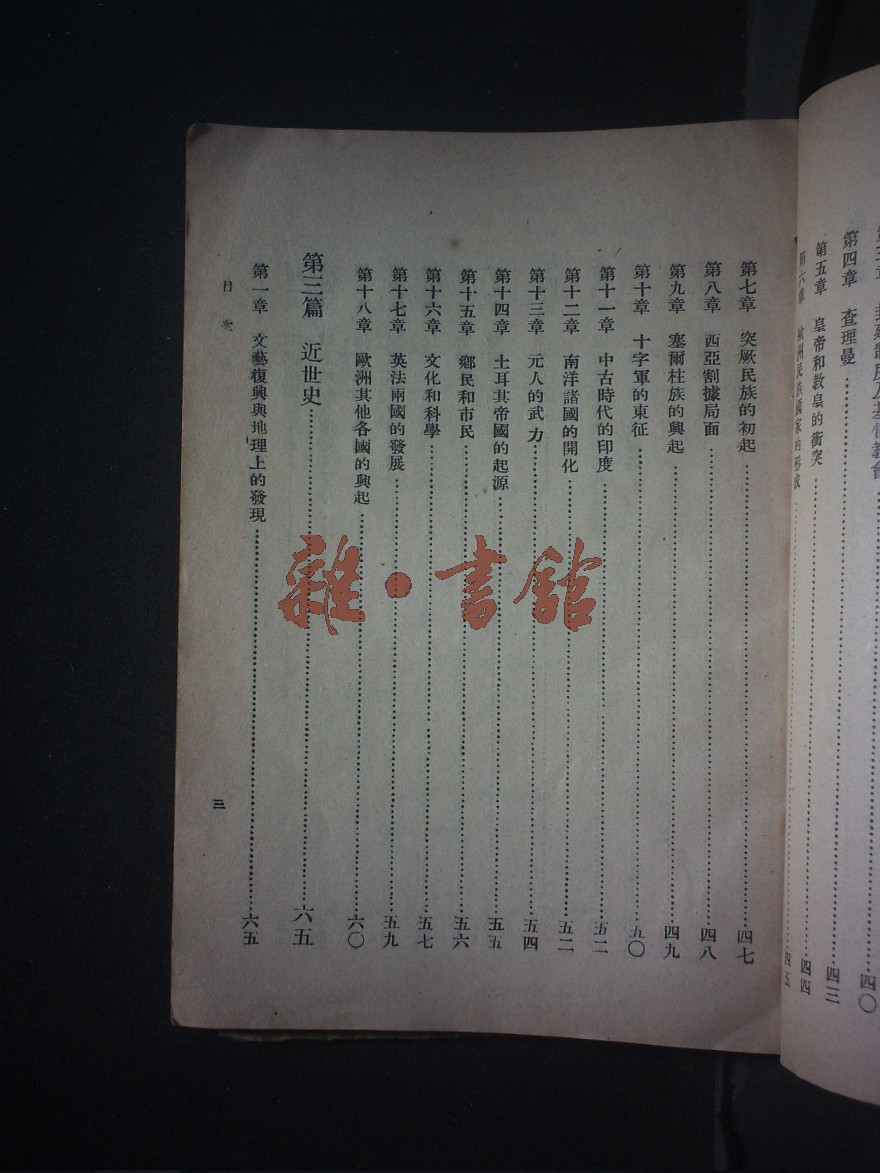 第四章　查理曼……四三
第五章　皇帝和教皇的衝突……四四
第六章　歐洲民族國家的形成……四五
第七章　突厥民族的初起……四七
第八章　西亞割據局面……四八
第九章　塞爾柱族的興起……四九
第十章　十字軍的東征……五〇
第十一章　中古時代的印度……五二
第十二章　南洋諸國的開化……五二
第十三章　元人的武力……五四
第十四章　土耳其帝國的起源……五五
第十五章　鄉民和市民……五六
第十六章　文化和科學……五七
第十七章　英法兩國的發展……五九
第十八章　歐洲其他各國的興起……六〇
第三篇　近世史……六五
第一章　文藝復興與地理上的發現……六五
目次
三
雜·書館